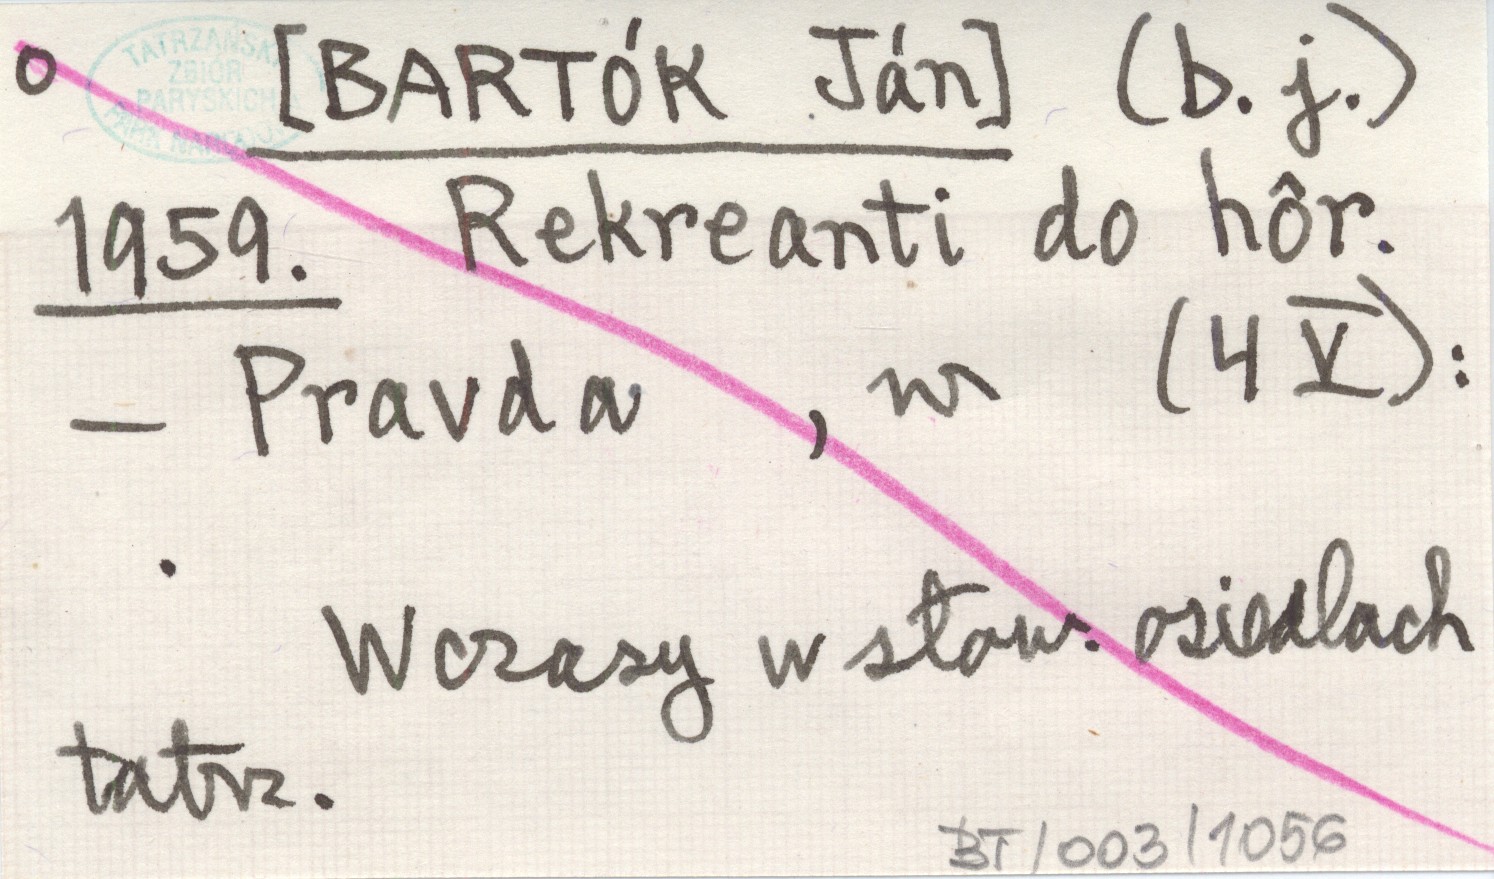 o [BARTÓK Ján] (b. j.)
TATRZAŃSKI
ZBIÓR
PARYSKICH
PARK NARODOWY
1959. Rekreanti do hôr.
— Pravda , w (4 V):
.
Wczasy w słow. osiedlach
tatrz.
BT/003/1056